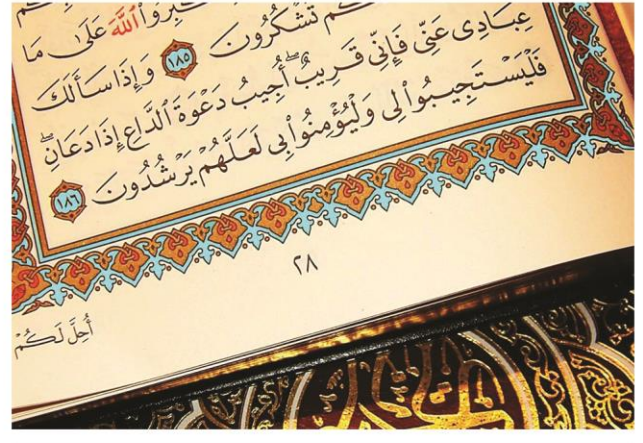 كُم تَشْكُرُونَ ١٨٥ وَإِذَا سَأَلَكَ
عِبَادِى عَنِّى فَإِنِّى قَرِيبٌ ۖ أُجِيبُ دَعْوَةَ ٱلدَّاعِ إِذَا دَعَانِ ۖ
فَلْيَسْتَجِيبُوا۟ لِى وَلْيُؤْمِنُوا۟ بِى لَعَلَّهُمْ يَرْشُدُونَ ١٨٦
٢٨
أُحِلَّ لَكُمْ